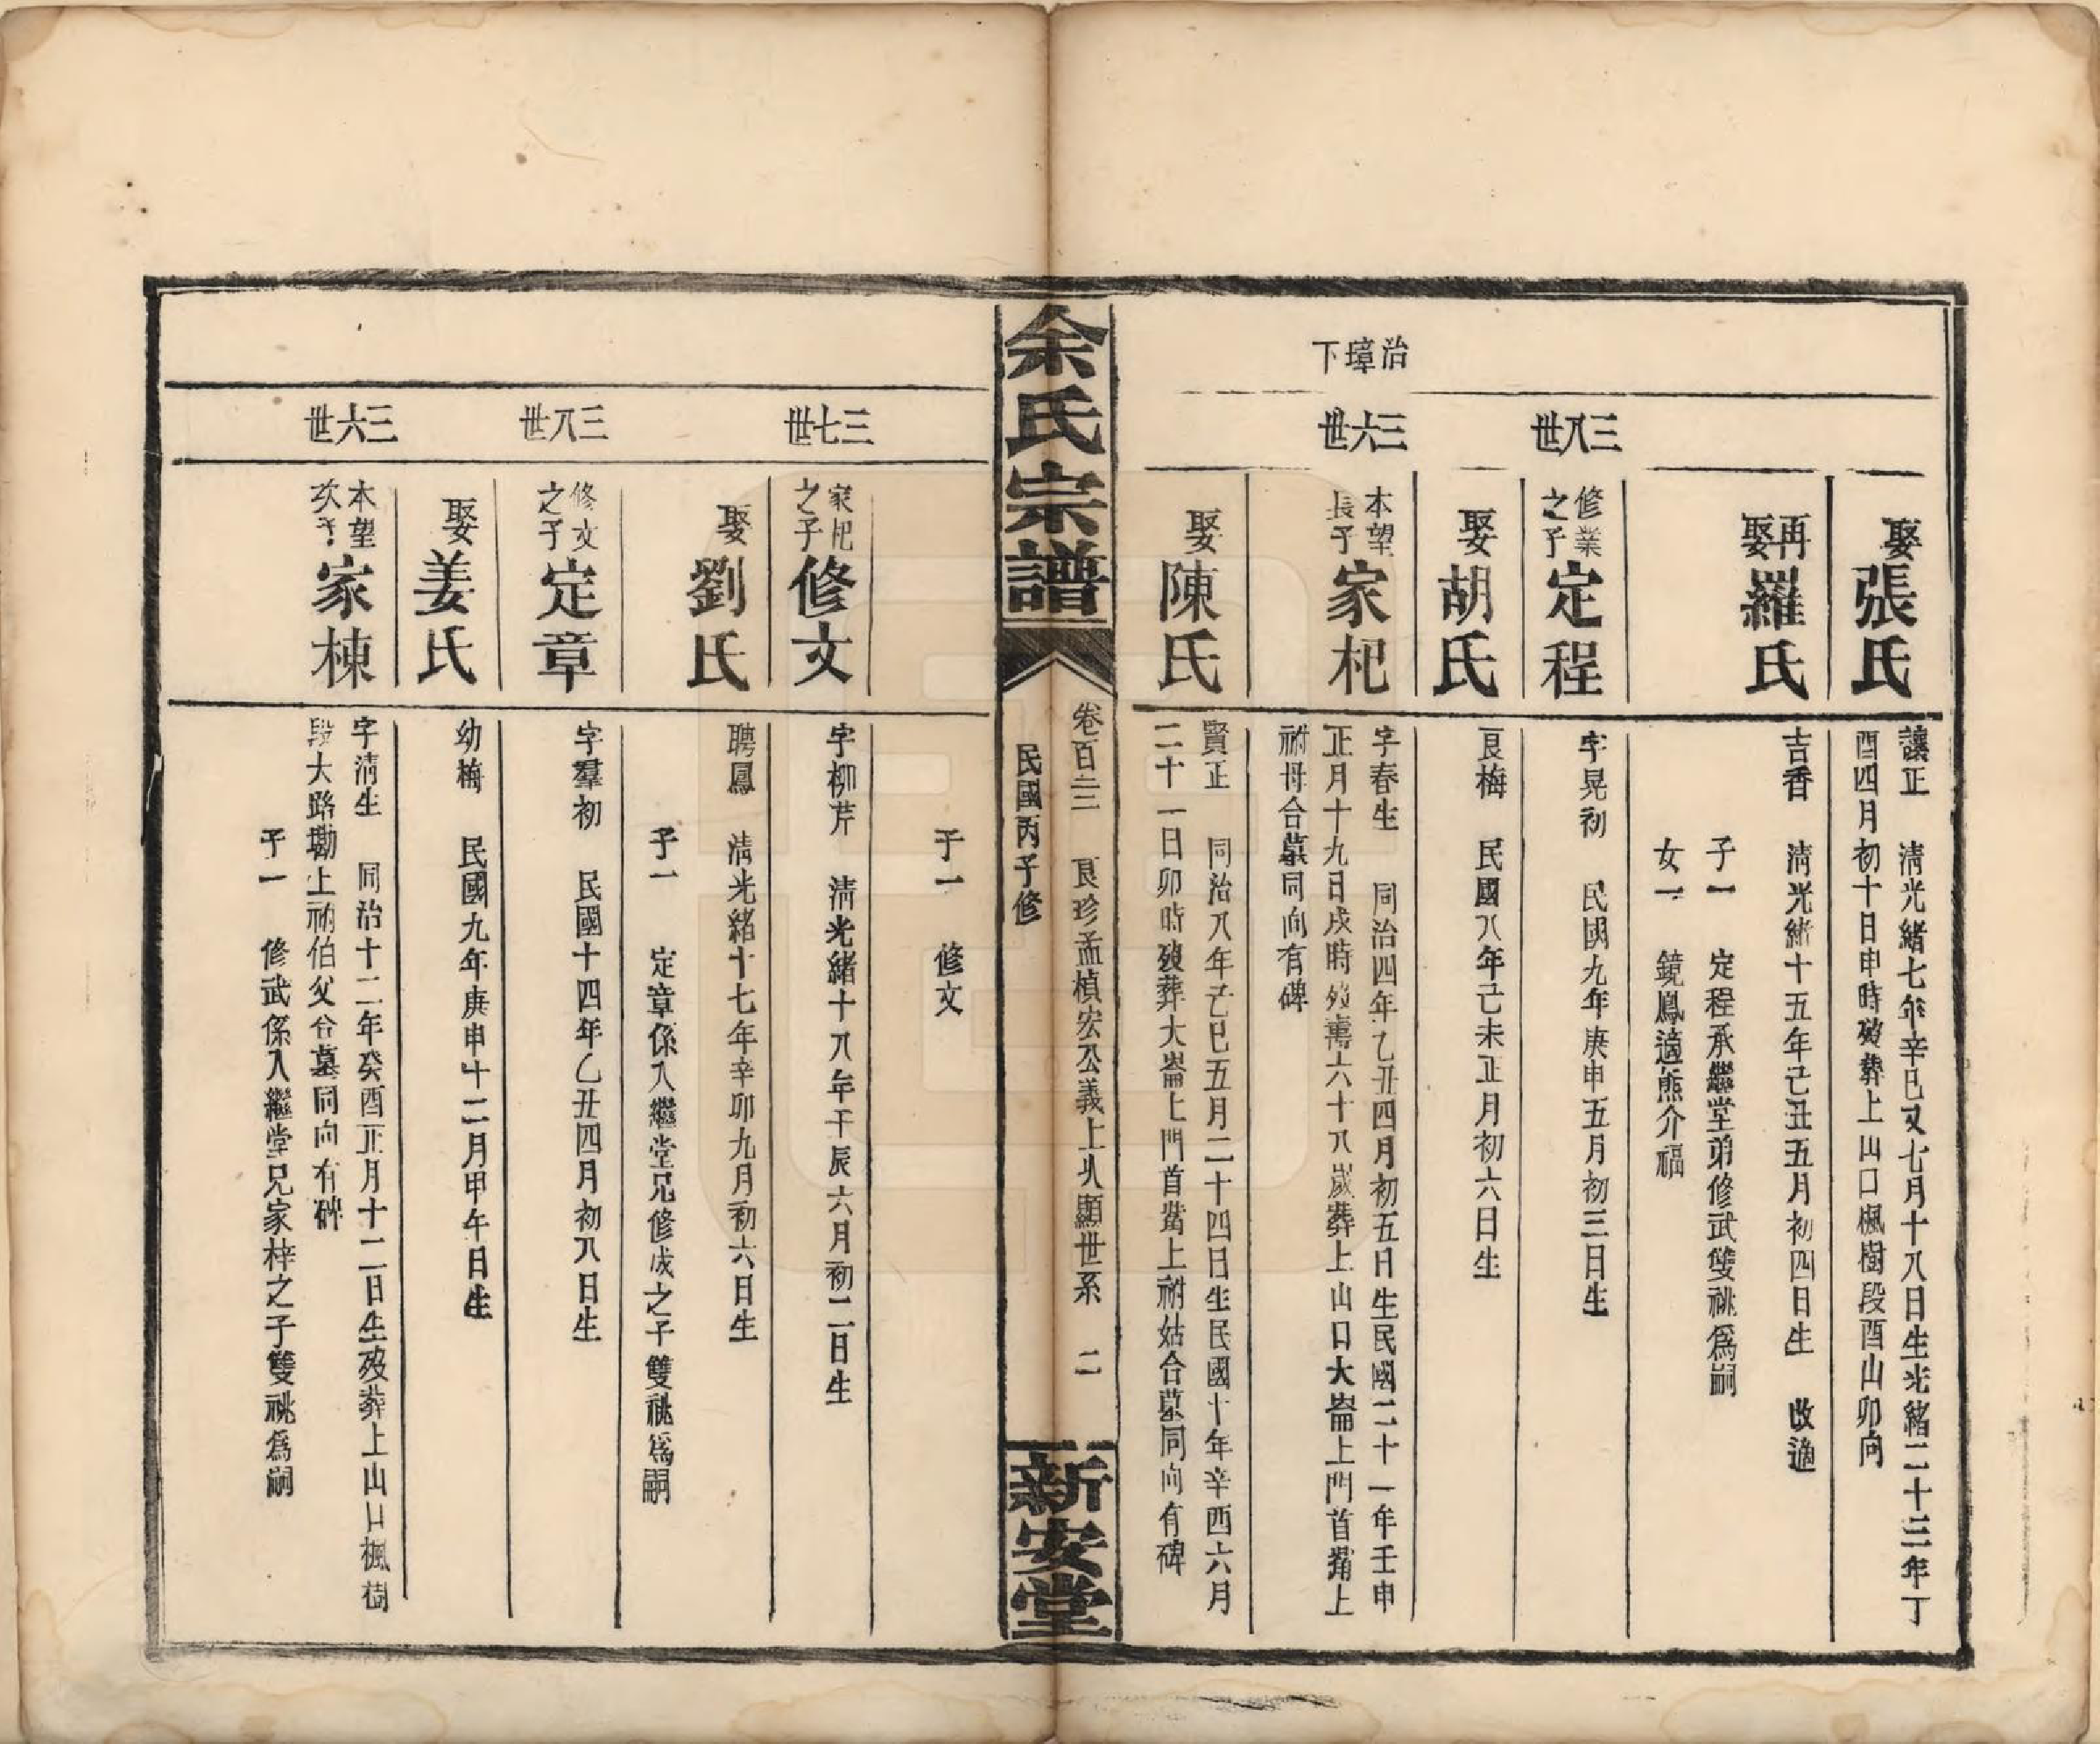 治璋下
娶張氏
讓正 淸光緒七年辛巳又七月十八日生光緒二十三年丁
酉四月初十日申時歿葬上山口楓樹段酉山卯向
再娶羅氏
吉香 淸光緒十五年己丑五月初四日生 改適
子一 定程承繼堂弟修武雙祧爲嗣
女一 鏡鳳適熊介福
三八世
修業之子定程
字晃初 民國九年庚申五月初三日生
娶胡氏
良梅 民國八年己未正月初六日生
三六世
本望長子家杞
字春生 同治四年乙丑四月初五日生民國二十一年壬申
正月十九日戌時歿壽六十八歲葬上山口大崙上門首觜上
祔母合墓同向有碑
娶陳氏
賢正 同治八年己巳五月二十四日生民國十年辛酉六月
二十一日卯時歿葬大崙上門首觜上祔姑合墓同向有碑
余氏宗譜
卷百三三 良珍孟楨宏公義上火顯世系 二
民國丙子修
新安堂
子一 修文
三七世
家杞之子修文
字柳芹 淸光緒十八年壬辰六月初二日生
娶劉氏
聘鳳 淸光緒十七年辛卯九月初六日生
子一 定章係入繼堂兄修成之子雙祧爲嗣
三八世
修文之子定章
字羣初 民國十四年乙丑四月初八日生
娶姜氏
幼梅 民國九年庚申十二月甲午日生
三六世
本望次子家棟
字淸生 同治十二年癸酉正月十二日生歿葬上山口楓樹
段大路墈上祔伯父合墓同向有碑
子一 修武係入繼堂兄家梓之子雙祧爲嗣